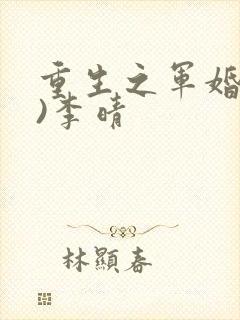 重生之军婚
)李晴
林顯春